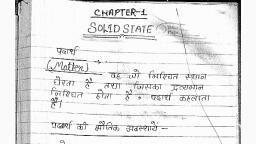 CHAPTER-1
SOLID STATE
पदार्थ
(Matter) → वह जो निश्चित स्थान
घेरता है तथा जिसका द्रव्यमान
निश्चित होता है, पदार्थ कहलाता
है।
पदार्थ की भौतिक अवस्थायें —